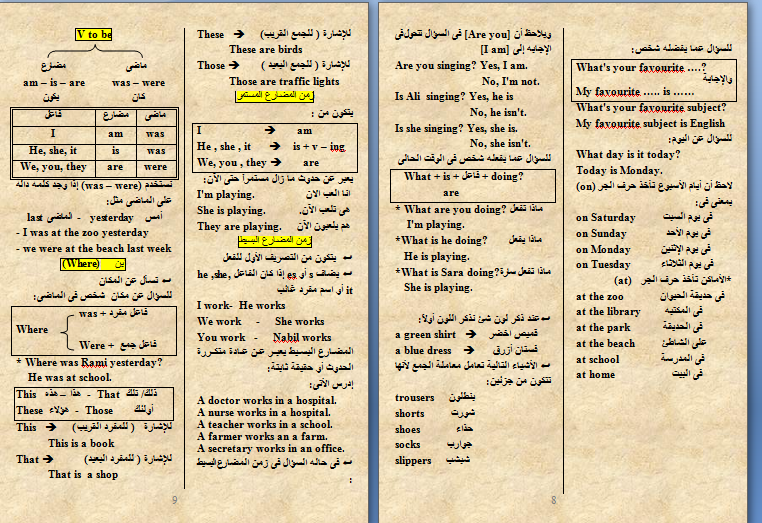 V to be
مضارع ماضى
am – is – are was – were
يكون كان
فاعل مضارع ماضى
I am was
He, she, it is was
We, you, they are were
نستخدم (was – were) إذا وجد كلمه داله
على الماضى مثل:
أمس yesterday - الماضى last
- I was at the zoo yesterday
- we were at the beach last week
(Where) ين
تسأل عن المكان
للسؤال عن مكان شخص فى الماضى:
was + فاعل مفرد
Where
Were + فاعل جمع
* Where was Rami yesterday?
He was at school.
This هذا – هذه - That ذلك/ تلك
These هؤلاء - Those أولئك
This ➔ للإشارة ( للمفرد القريب)
This is a book
That ➔ للإشارة ( للمفرد البعيد)
That is a shop
These ➔ للإشارة ( للجمع القريب)
These are birds
Those ➔ للإشارة ( للجمع البعيد )
Those are traffic lights
زمن المضارع المستمر
يتكون من :
I ➔ am
He , she , it ➔ is + v – ing
We, you , they ➔ are
يعبر عن حدث ما زال مستمراً حتى الآن:
I'm playing. انا العب الان
She is playing. هى تلعب الآن.
They are playing. هم يلعبون الآن
زمن المضارع البسيط
يتكون من التصريف الأول للفعل
يضاف s أو es إذا كان الفاعل he ,she,
it أو اسم مفرد غائب
I work- He works
We work - She works
You work - Nabil works
المضارع البسيط يعبر عن عادة متكررة
الحدوث أو حقيقة ثابتة:
إدرس الآتى:
A doctor works in a hospital.
A nurse works in a hospital.
A teacher works in a school.
A farmer works an a farm.
A secretary works in an office.
فى حاله السؤال فى زمن المضارع البسيط
:
9
ويلاحظ أن [Are you] فى السؤال تتحول فى
الإجابه إلى [I am]
Are you singing? Yes, I am.
No, I'm not.
Is Ali singing? Yes, he is
No, he isn't.
Is she singing? Yes, she is.
No, she isn't.
للسؤال عما يفعله شخص فى الوقت الحالى
What + is + فاعل + doing?
are
* What are you doing? ماذا تفعل
I'm playing.
*What is he doing? ماذا يفعل
He is playing.
*What is Sara doing? ماذا تفعل سارة
She is playing.
عند ذكر لون شئ نذكر اللون أولاً:
a green shirt ➔ قميص اخضر
a blue dress ➔ فستان أزرق
الأشياء التالية تعامل معاملة الجمع لأنها
تتكون من جزئين:
trousers بنطلون
shorts شورت
shoes حذاء
socks جوارب
slippers شبشب
للسؤال عما يفضله شخص:
What's your favourite ....?
والإجابة
My favourite ..... is ......
What's your favourite subject?
My favourite subject is English
للسؤال عن اليوم:
What day is it today?
Today is Monday.
لاحظ أن أيام الأسبوع تأخذ حرف الجر (on)
بمعنى فى:
on Saturday فى يوم السبت
on Sunday فى يوم الأحد
on Monday فى يوم الإثنين
on Tuesday فى يوم الثلاثاء
*الأماكن تأخذ حرف الجر (at)
at the zoo فى حديقة الحيوان
at the library فى المكتبه
at the park فى الحديقة
at the beach على الشاطئ
at school فى المدرسة
at home فى البيت
8